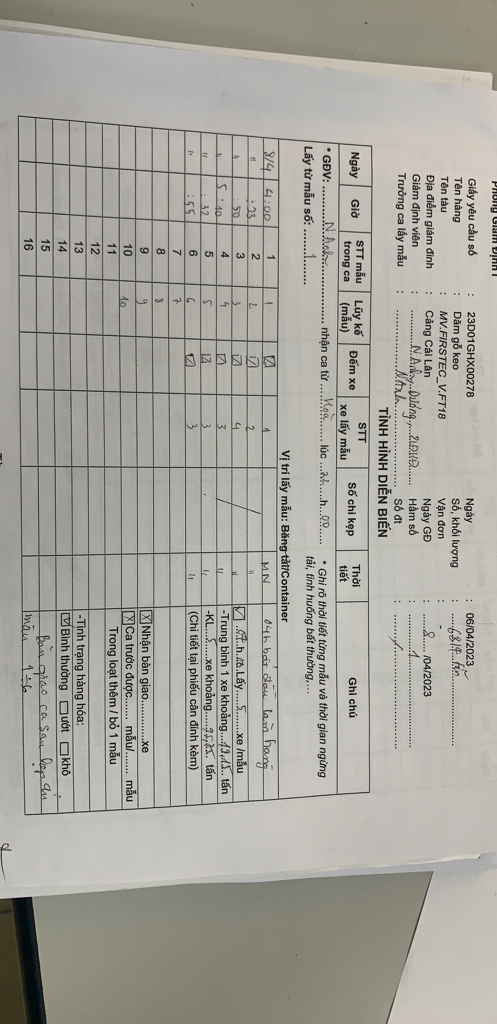 Phòng Giám Định I
Giấy yêu cầu số : 23D01GHX00278 Ngày : 06/04/2023
Tên hàng : Dăm gỗ keo Số, khối lượng : 6819 tấn
Tên tàu : MV.FIRSTEC_V.FT18 Vận đơn : -
Địa điểm giám định : Cảng Cái Lân Ngày GĐ : 8 /04/2023
Giám định viên : N.Anh, Dương, Hầm số : 1
Trưởng ca lấy mẫu : N.Anh Số đt :
TÌNH HÌNH DIỄN BIẾN
* GĐV: N.Anh nhận ca từ Hoà lúc 22 h 00
Lấy từ mẫu số: 1
* Ghi rõ thời tiết từng mẫu và thời gian ngừng tải, tình huống bất thường,...
Ngày Giờ STT mẫu trong ca Lũy kế (mẫu) Đếm xe STT xe lấy mẫu Số chì kẹp Thời tiết Ghi chú
Vị trí lấy mẫu: Băng tải/Container
8/4 4:00 1 1 ☑ 1 MN 04h bắt đầu làm hàng
" :23 2 2 ☑ 2 "
" :50 3 3 ☑ 4 " ☑ h Lấy 5 xe /mẫu
" 5:10 4 4 ☑ 3 " -Trung bình 1 xe khoảng 19,15 tấn
" :32 5 5 ☑ 3 " -KL 5 xe khoảng 95,75 tấn
" :55 6 6 ☑ 3 " (Chi tiết tại phiếu cân đính kèm)
7 7
8 8
9 9 ☒ Nhận bàn giao........xe
10 10 ☒ Ca trước được....... mẫu/........ mẫu
11 Trong loạt thêm / bỏ 1 mẫu
12
13 -Tình trạng hàng hóa:
14 ☑ Bình thường ☐ ướt ☐ khô
15 Bàn giao ca sau
16 mẫu 1÷6